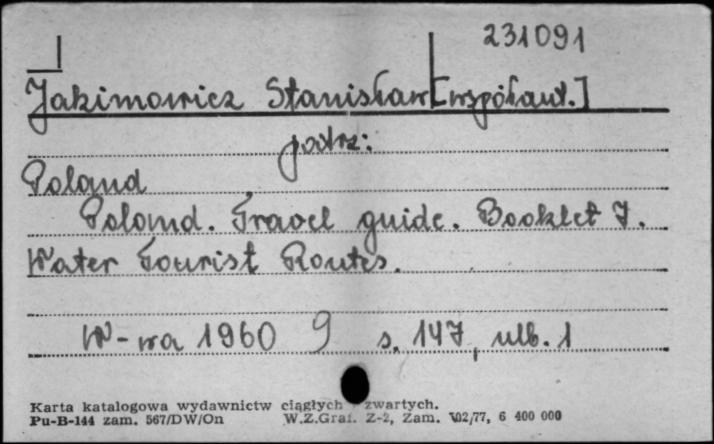 231091
Jakimowicz Stanisław [współaut.]
patrz:
Poland
Poland. Travel guide. Booklet 7.
Water Tourist Routes.
W-wa 1960 9 s. 147, ulb. 1
Karta katalogowa wydawnictw ciągłych zwartych.
Pu-B-144 zam. 567/DW/On W.Z.Graf. Z-2, Zam. 702/77, 6 400 000